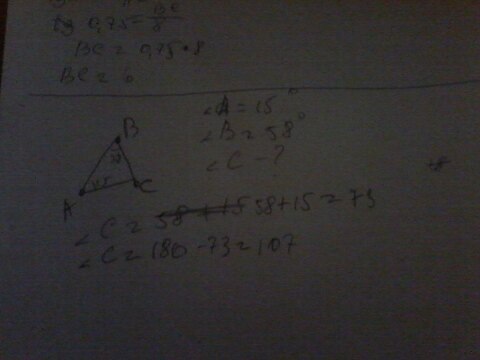 tg 0,75 = BC/8
BC = 0,75 • 8
BC = 6
∠A = 15°
∠B = 58°
∠C - ?
B
58
A
15
C
∠C = 58+15 = 73
∠C = 180 - 73 = 107